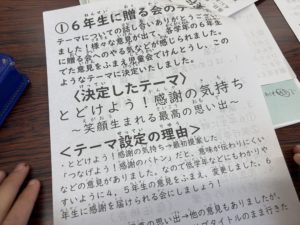 ①6年生に贈る会のテーマ
テーマについての話し合いありがとうござい
ました！様々な意見が出て、各学年の6年
生に贈る会へのやる気などが感じられました。
でた意見をふまえ児童会でけんとうし、この
ようなテーマに決定いたしました。
〈決定したテーマ〉
とどけよう！感謝の気持ち
～笑顔生まれる最高の思い出～
〈テーマ設定の理由〉
・とどけよう！感謝の気持ち→最初提案した
「つなげよう！感謝のバトン」だと、意味が伝わりにくい
などの意見がありました。なので低学年などにもわかりや
すいように4、5年生の意見をふまえ、変更しました。6
年生に感謝を届けられる会にしましょう！
高の思い出→他の意見もありましたが、
ブタイトルのまま行きた